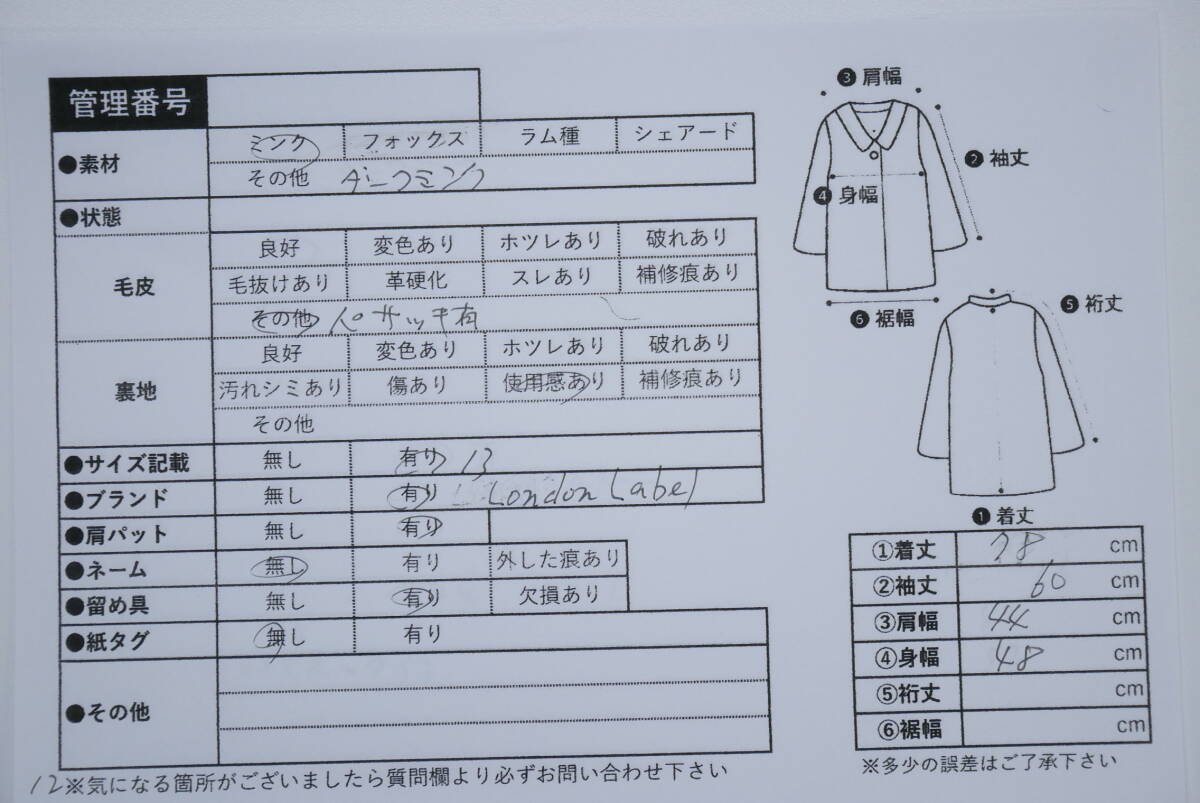 管理番号
●素材 ミンク フォックス ラム種 シェアード
その他 ダークミンク
●状態
毛皮 良好 変色あり ホツレあり 破れあり
毛抜けあり 革硬化 スレあり 補修痕あり
その他 パサツキ有
裏地 良好 変色あり ホツレあり 破れあり
汚れシミあり 傷あり 使用感あり 補修痕あり
その他
●サイズ記載 無し 有り 13
●ブランド 無し 有り London Label
●肩パット 無し 有り
●ネーム 無し 有り 外した痕あり
●留め具 無し 有り 欠損あり
●紙タグ 無し 有り
●その他
12※気になる箇所がございましたら質問欄より必ずお問い合わせ下さい
❸ 肩幅
❷ 袖丈
❹ 身幅
❻ 裾幅
❺ 裄丈
❶ 着丈
①着丈 78 cm
②袖丈 60 cm
③肩幅 44 cm
④身幅 48 cm
⑤裄丈 cm
⑥裾幅 cm
※多少の誤差はご了承下さい